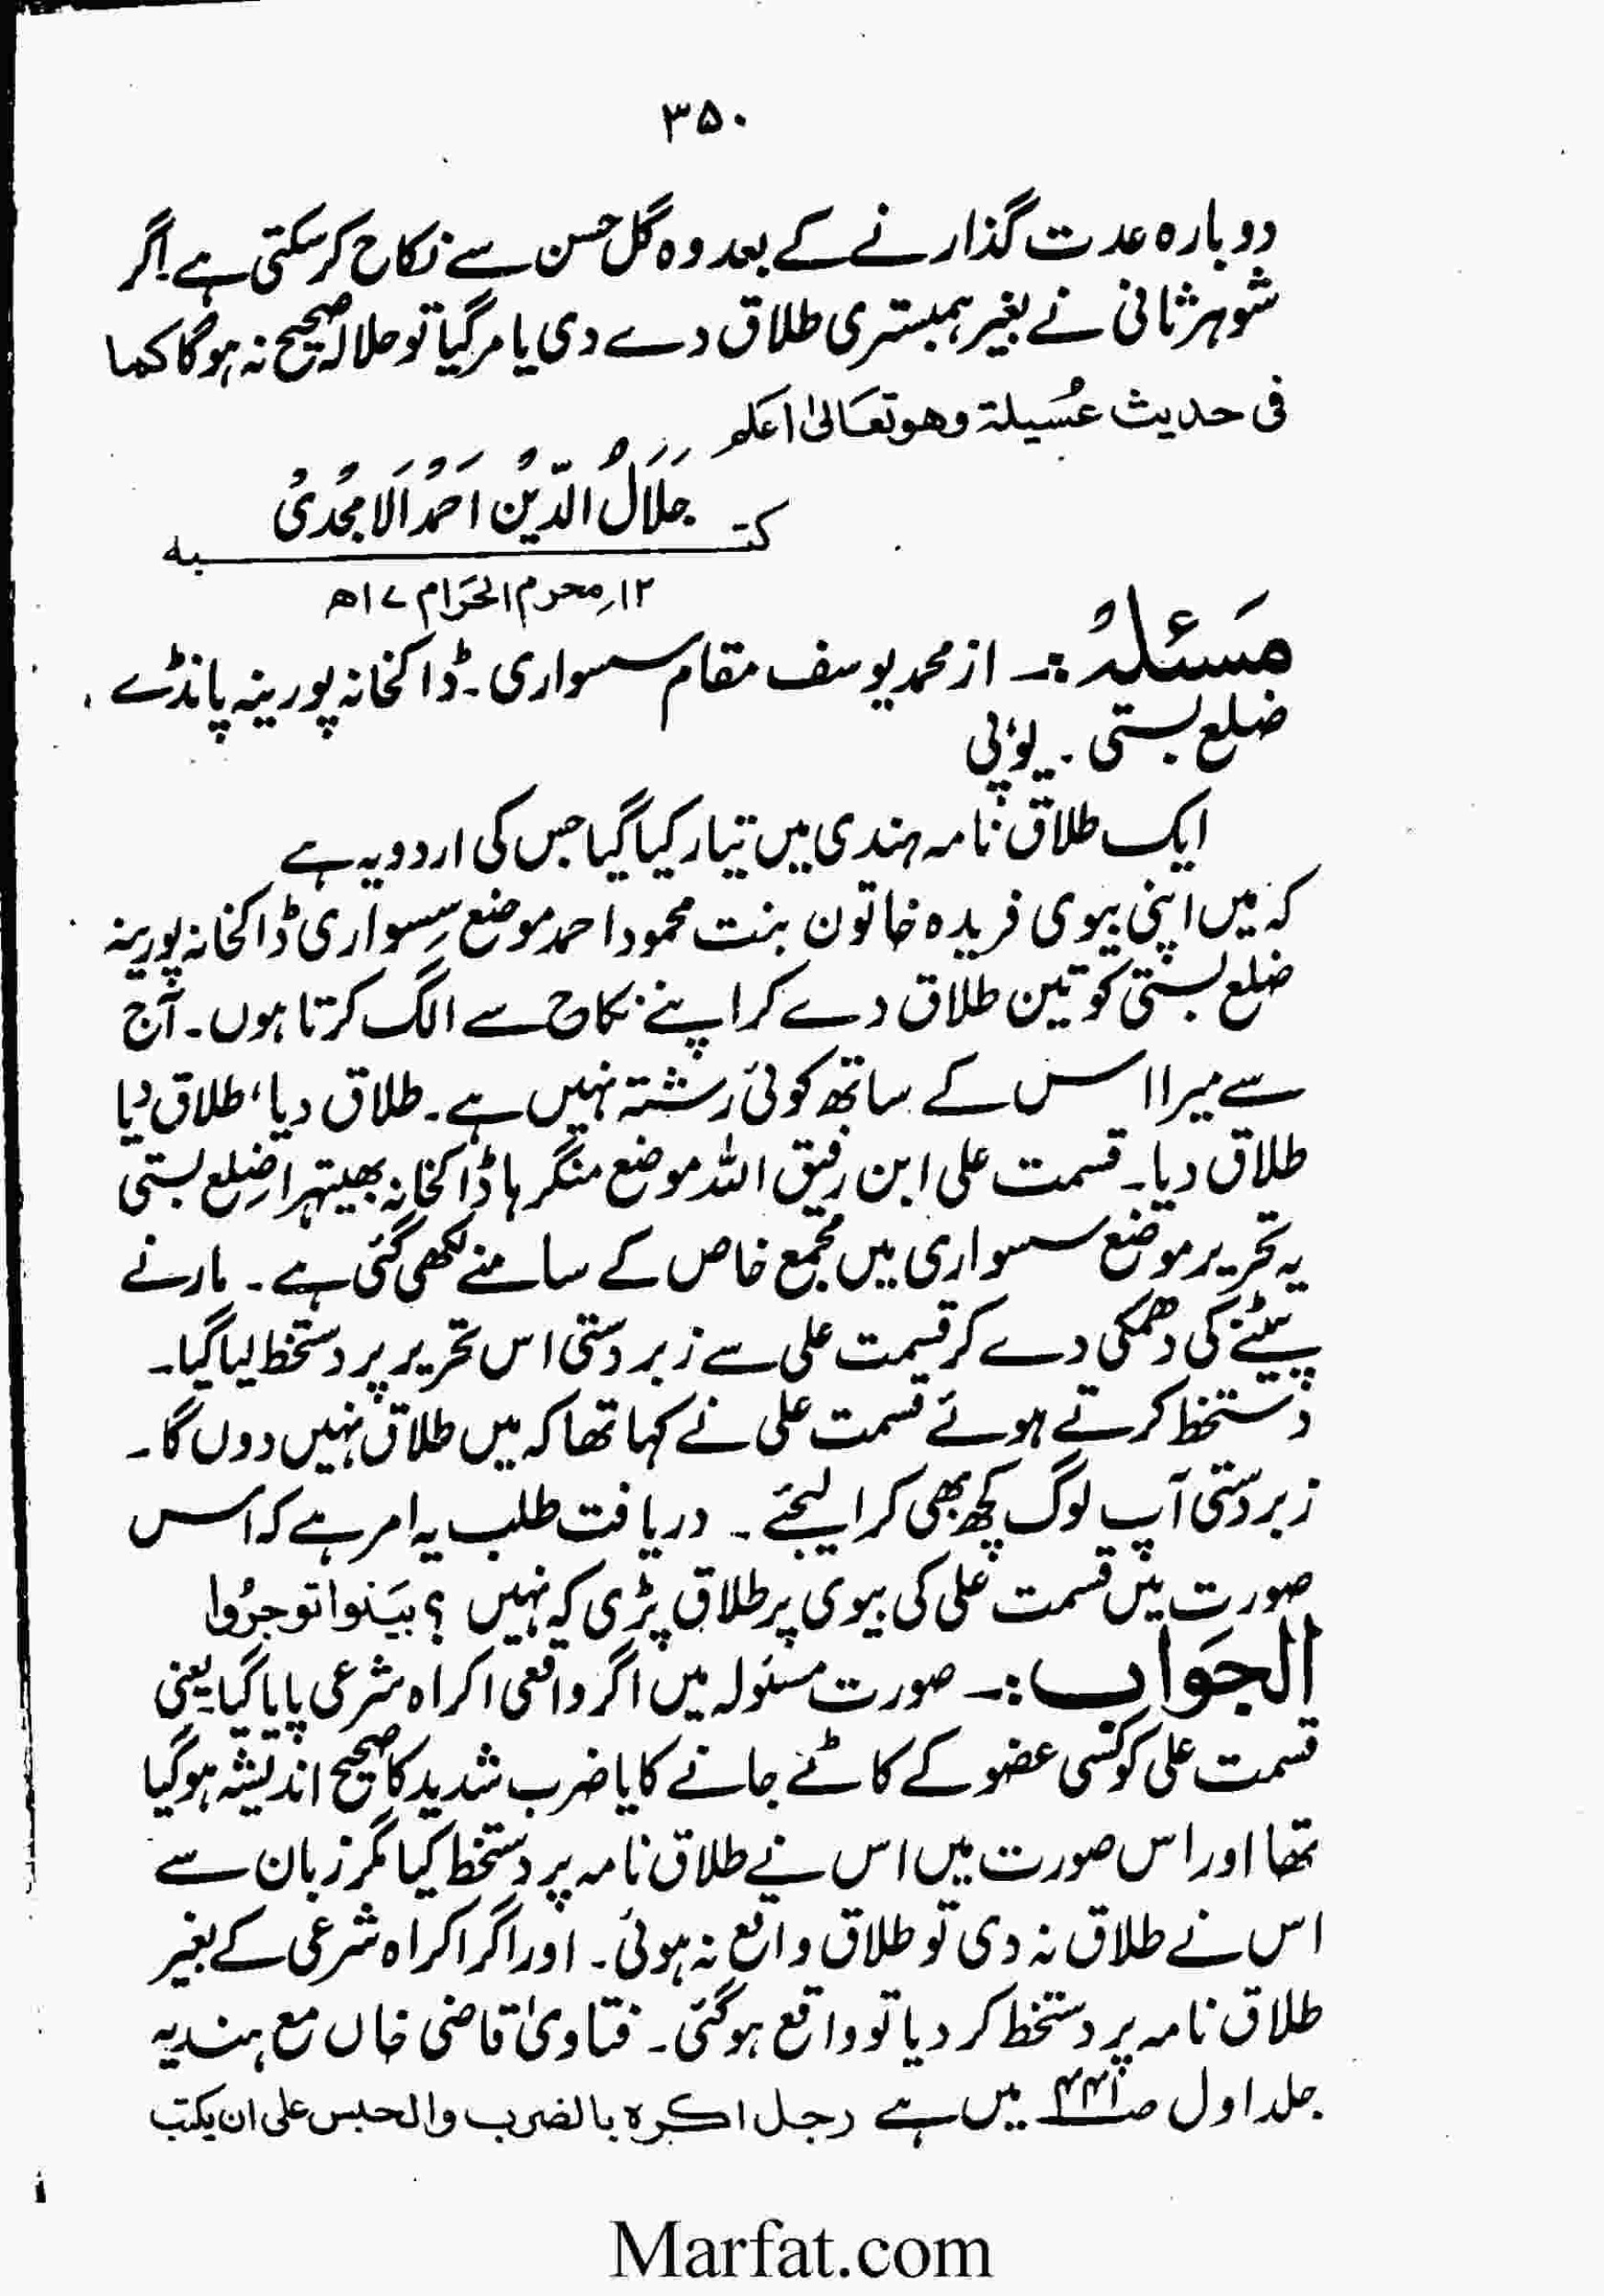 ۳۵۰
دوبارہ عدت گذارنے کے بعد وہ گل حسن سے نکاح کر سکتی ہے۔ اگر
شوہر ثانی نے بغیر ہمبستری طلاق دے دی یا مر گیا تو حلالہ صحیح نہ ہوگا کما
فی حدیث عُسَیلۃ وھو تعَالیٰ اعَلم
جَلَالُ الدّینُ اَحمَدُ الَامجُدیُ
کتـــــــبہ
۱۲؍ محرم الحَرَام ۱۷ھ
مَسئلہُ :۔ از محمد یوسف مقام سسواری۔ ڈاکخانہ پورینہ پانڈے
ضلع بستی۔ یوُپی
ایک طلاق نامہ ہندی میں تیار کیا گیا جس کی اردو یہ ہے
کہ میں اپنی بیوی فریدہ خاتون بنت محمود احمد موضع سِسواری ڈاکخانہ پورینہ
ضلع بستی کو تین طلاق دے کر اپنے نکاح سے الگ کرتا ہوں۔ آج
سے میرا اس کے ساتھ کوئی رشتہ نہیں ہے۔ طلاق دیا، طلاق دیا
طلاق دیا۔ قسمت علی ابن رفیق اللہ موضع منگرہا ڈاکخانہ بھیتہرا ضلع بستی
یہ تحریر موضع سسواری میں مجمع خاص کے سامنے لکھی گئی ہے۔ مارنے
پیٹنے کی دھمکی دے کر قسمت علی سے زبردستی اس تحریر پر دستخط لیا گیا۔
دستخط کرتے ہوئے قسمت علی نے کہا تھا کہ میں طلاق نہیں دوں گا۔
زبردستی آپ لوگ کچھ بھی کرا لیجئے۔ دریافت طلب یہ امر ہے کہ اس
صورت میں قسمت علی کی بیوی پر طلاق پڑی کہ نہیں؟ بیَنوا توجرُوا
الجَوابُ :۔ صورت مسئولہ میں اگر واقعی اکراہ شرعی پایا گیا یعنی
قسمت علی کو کسی عضو کے کاٹے جانے کا یا ضرب شدید کا صحیح اندیشہ ہوگیا
تھا اور اس صورت میں اس نے طلاق نامہ پر دستخط کیا مگر زبان سے
اس نے طلاق نہ دی تو طلاق واقع نہ ہوئی۔ اور اگر اکراہ شرعی کے بغیر
طلاق نامہ پر دستخط کر دیا تو واقع ہوگئی۔ فتاویٰ قاضی خاں مع ہندیہ
جلد اول صـ۴۴۱ میں ہے رجل اکرہ بالضرب والحبس علی ان یکتب
Marfat.com